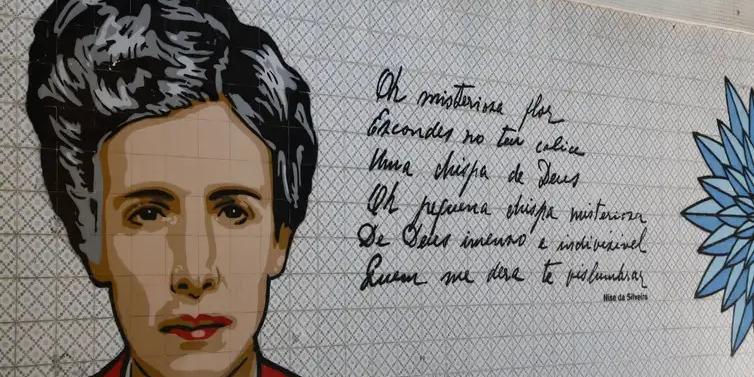 Oh misteriosa flor
Escondes no teu calice
Uma chispa de Deus
Oh pequena chispa misteriosa
De Deus imenso e indivisivel
Quem me dera te veslumbrar
Nise da Silveira